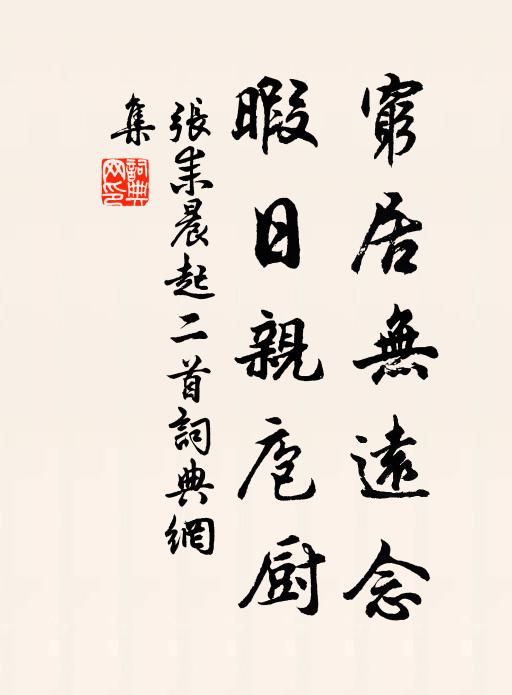 窮居無遠念
暇日親庖厨
張耒晨起二首詞典網
集
詞典网印